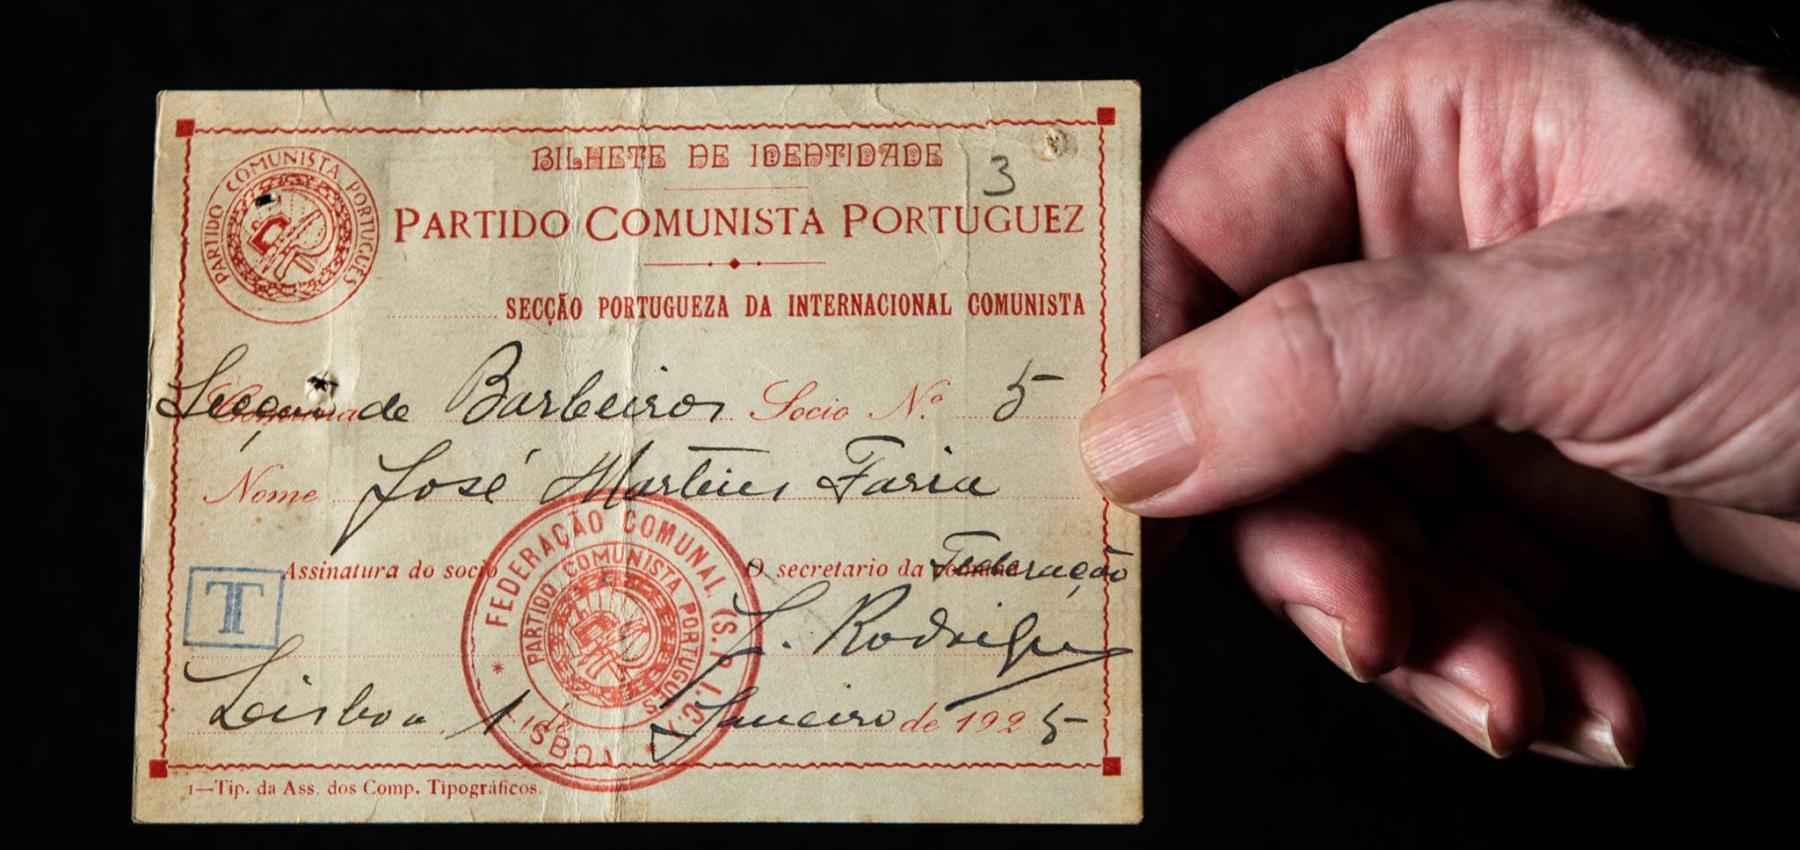 BILHETE DE IDENTIDADE
3
PARTIDO COMUNISTA PORTUGUÊS
PARTIDO COMUNISTA PORTUGUEZ
SECÇÃO PORTUGUEZA DA INTERNACIONAL COMUNISTA
Secção de Barbeiros Socio N.º 5
Nome José Martins Faria
Assinatura do socio O secretario da Federação
T
J. Rodrigues
Lisboa, 1 de Janeiro de 1925
FEDERAÇÃO COMUNAL (S.P.I.C.) * LISBOA *
PARTIDO COMUNISTA PORTUGUÊS
1—Tip. da Ass. dos Comp. Tipográficos